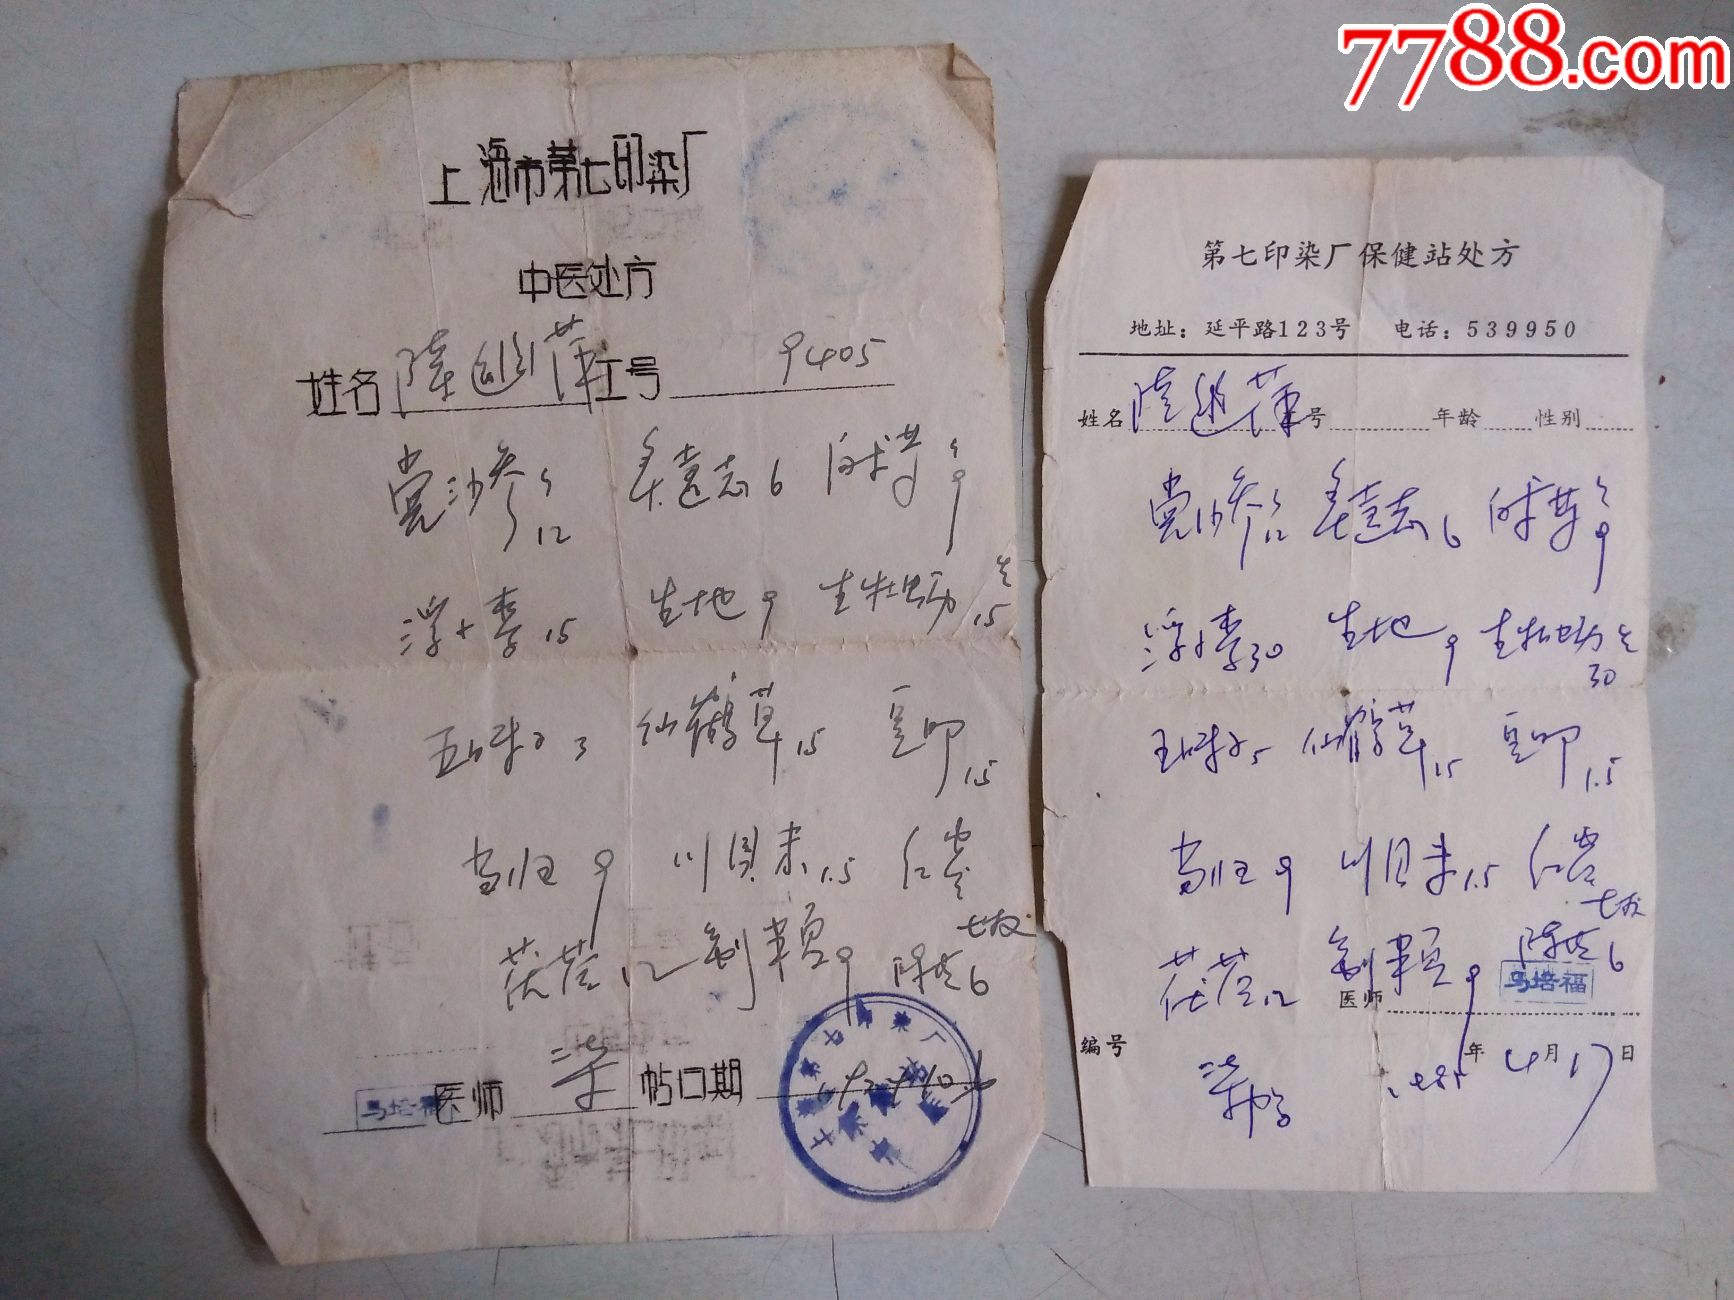 7788.com
上海市第七印染厂
中医处方
姓名 工号 9405
党沙参 12 炙远志 6 白术芍 9
浮小麦 15 生地 9 生牡蛎 先 15
五味子 3 仙鹤草 15 豆卩 1.5
当归 9 川贝末 1.5 红枣 七枚
茯苓 12 制半夏 9 陈皮 6
医师 帖日期
马培福
第七印染厂保健站处方
地址：延平路123号 电话：539950
姓名 号 年龄 性别
党沙参 12 炙远志 6 白术芍 9
浮小麦 30 生地 9 生牡蛎 先 30
五味子 5 仙鹤草 15 豆卩 1.5
当归 9 川贝末 1.5 红枣 七枚
茯苓 12 制半夏 9 陈皮 6
医师 马培福
编号 1985年4月17日